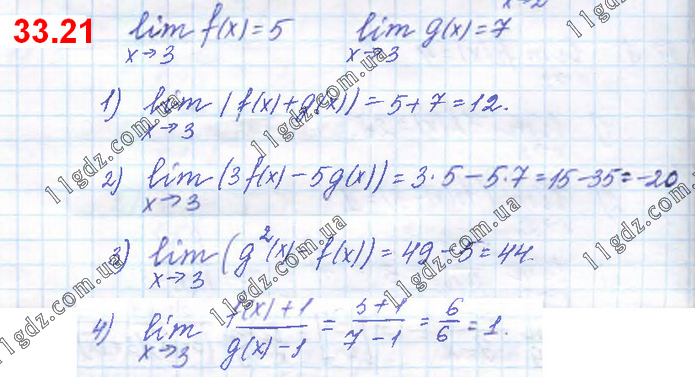 33.21 lim x→3 f(x) = 5 lim x→3 g(x) = 7
1) lim x→3 (f(x) + g(x)) = 5 + 7 = 12.
2) lim x→3 (3f(x) − 5g(x)) = 3 · 5 − 5 · 7 = 15 − 35 = −20
3) lim x→3 (g²(x) − f(x)) = 49 − 5 = 44.
4) lim x→3 (f(x) + 1)/(g(x) − 1) = (5 + 1)/(7 − 1) = 6/6 = 1.
11gdz.com.ua
11gdz.com.ua
11gdz.com.ua
11gdz.com.ua
11gdz.com.ua
11gdz.com.ua